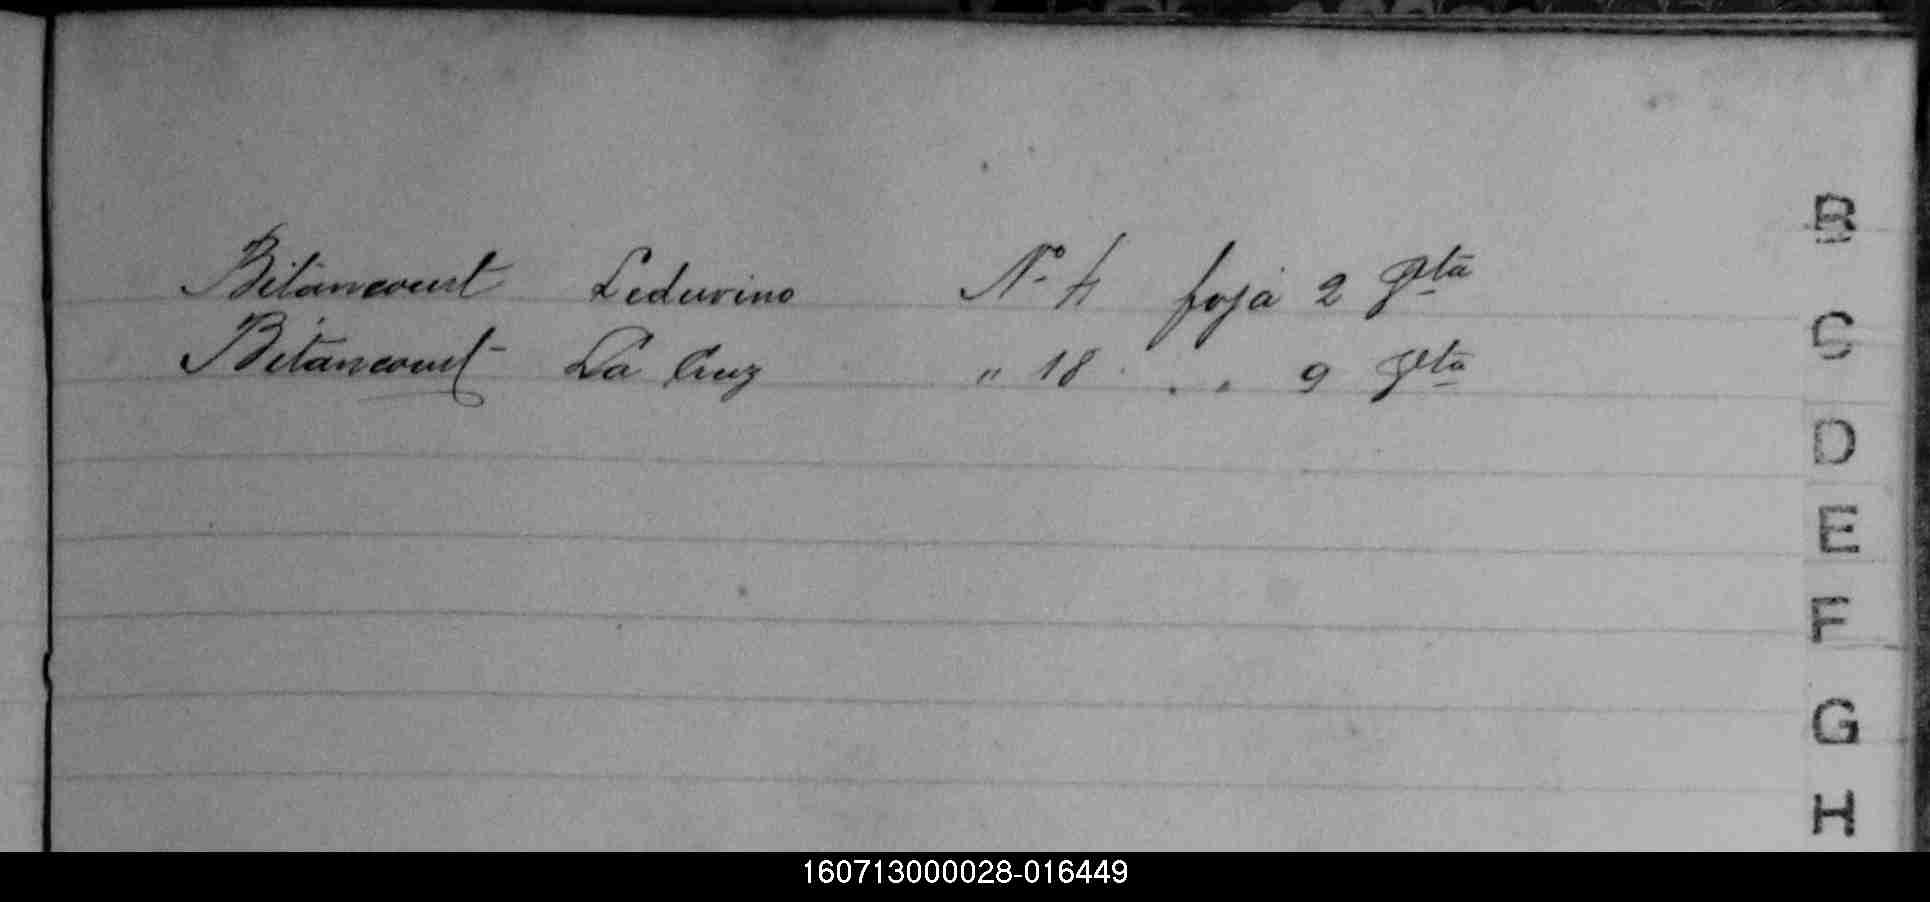 Bitancourt Leduvino Nº 4 foja 2 Vta
B
Bitancourt La Cruz " 18 . . 9 Vta
C
D
E
F
G
H
160713000028-016449